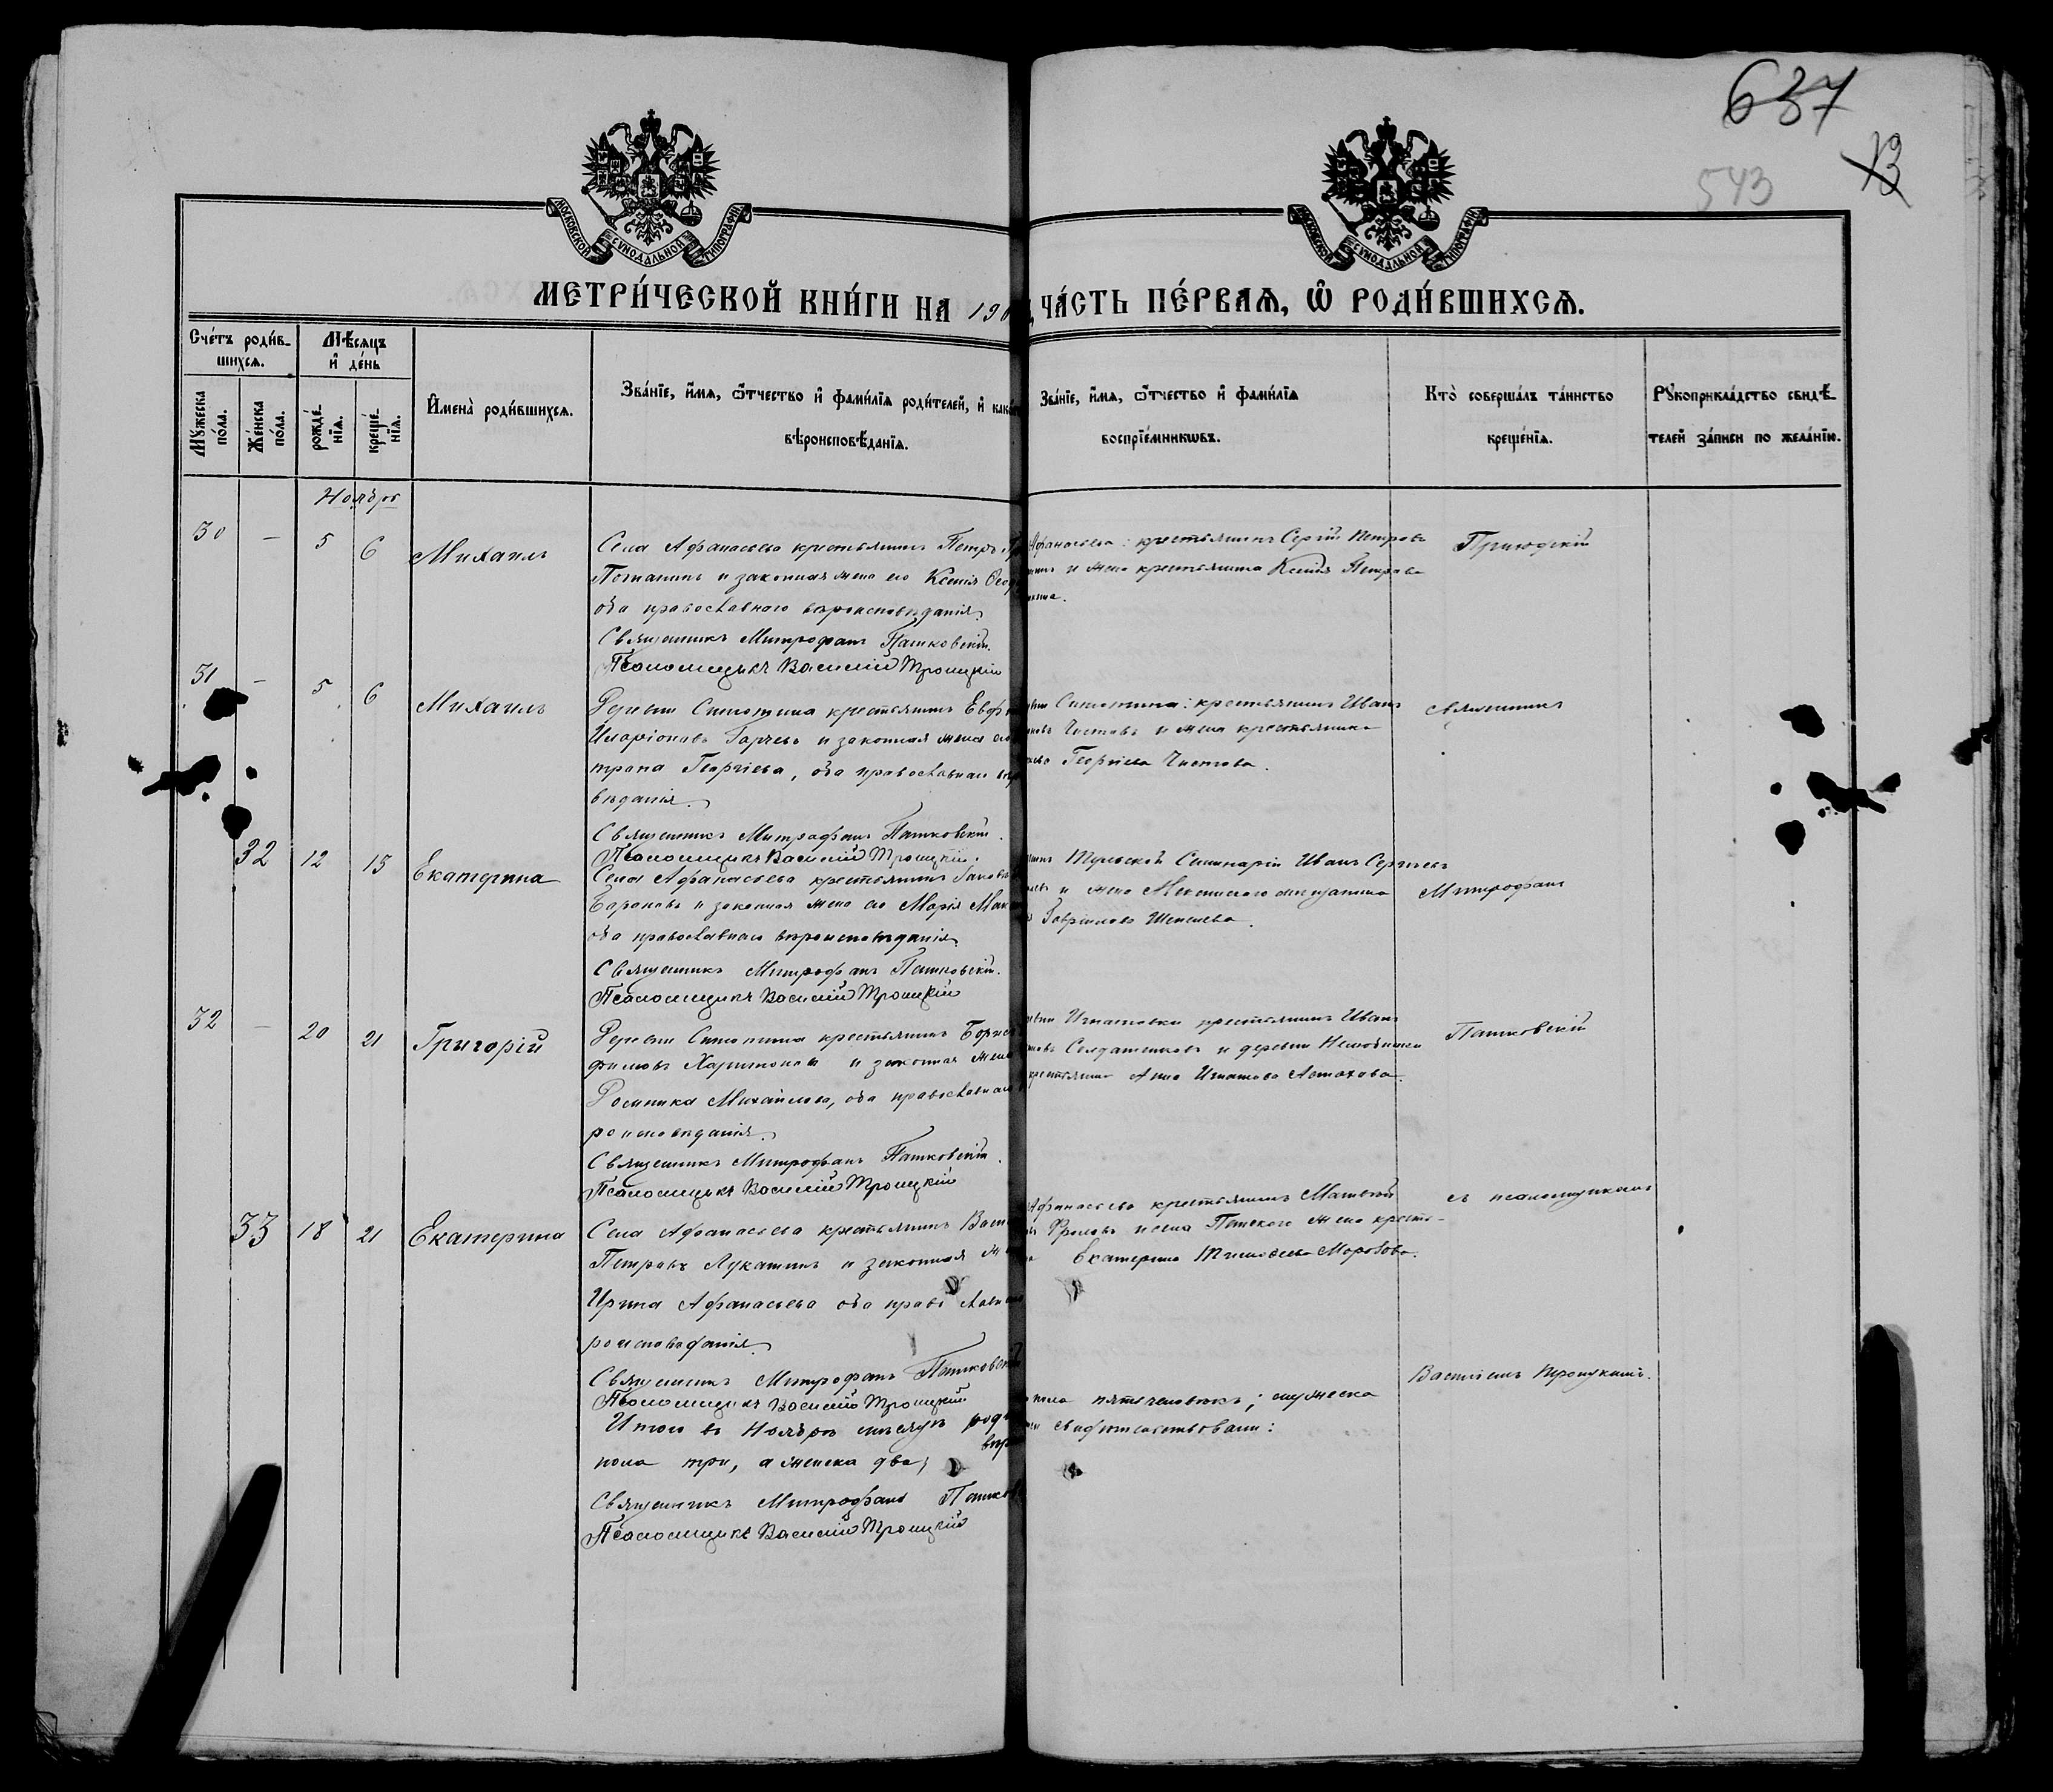 637
543
13
МОСКОВСКОЙ СУНОДАЛЬНОЙ ТИПОГРАФІИ
МОСКОВСКОЙ СУНОДАЛЬНОЙ ТИПОГРАФІИ
МЕТРИ́ЧЕСКОЙ КНИ́ГИ НА 190 ЧА́СТЬ ПЕ́РВАЯ, Ѿ РОДИ́ВШИХСЯ.
Сче́тъ роди́в-
шихся.
Мѣ́сяцъ
и҆ де́нь
Мꙋжеска по́ла.
Же́нска по́ла.
рожде́-нїя.
креще́-нїя.
И҆мена̀ роди́вшихся.
Зва́нїе, и҆́мя, ѻ҆́тчество и҆ фами́лїя роди́телей, и҆ како
вѣроисповѣ́данїя.
Зва́нїе, и҆́мя, ѻ҆́тчество и҆ фами́лїя
воспрїе́мникѡвъ.
Кто̀ соверша́лъ та́инство
креще́нїя.
Рꙋкоприкла́дство свидѣ́-
телей за́писи по жела́нїю.
Ноябрь
30 — 5 6 Михаилъ
Села Афанасьева крестьянинъ Петръ
Потапинъ и законная жена его Ксенія Ѳеод
оба православнаго вѣроисповѣданія.
Священникъ Митрофанъ Пятковскій.
Псаломщикъ Василій Троицкій
Афанасьева: крестьянинъ Сергій Петровъ
и жена крестьянина Ксенія Петрова
Приходскій
31 — 5 6 Михаилъ
Деревни Синютина крестьянинъ Евф
Иларіоновъ Горчевъ и законная жена его
трана Георгіева, оба православнаго вѣр
вѣданія.
Священникъ Митрофанъ Пятковскій.
Псаломщикъ Василій Троицкій.
Синютина: крестьянинъ Иванъ
Чистовъ и жена крестьянина
Георгіева Чистова.
священникъ
32 12 13 Екатерина
Села Афанасьева крестьянинъ Яковъ
Барановъ и законная жена его Марія Мак
оба православнаго вѣроисповѣданія.
Священникъ Митрофанъ Пятковскій.
Псаломщикъ Василій Троицкій
Тульской Семинаріи Иванъ Сергѣевъ
и жена
Гаврилова
Митрофанъ
32 — 20 21 Григорій
Деревни Синютина крестьянинъ Борисъ
филовъ Харитоновъ и законная жена
Домника Михайлова, оба православнаго
роисповѣданія.
Священникъ Митрофанъ Пятковскій.
Псаломщикъ Василій Троицкій
Игнатовки крестьянинъ Иванъ
Солдатенковъ и деревни
Анна Игнатова Астахова.
Пятковскій
33 18 21 Екатерина
Села Афанасьева крестьянинъ Васи
Петровъ Лукашинъ и законная ж
Ирина Афанасьева оба православна
роисповѣданія.
Священникъ Митрофанъ Пятковскій
Псаломщикъ Василій Троицкій
Афанасьева крестьянинъ Матвѣй
Фроловъ и села жена кресть-
Екатерина Тимофеева Морозова.
съ псаломщикомъ
Василіемъ Троицкимъ.
Итого въ Ноябрѣ мѣсяцѣ род
пола пять человѣкъ; мужеска
пола три, а женска два; вѣр
свидѣтельствовали:
Священникъ Митрофанъ Пятков
Псаломщикъ Василій Троицкій